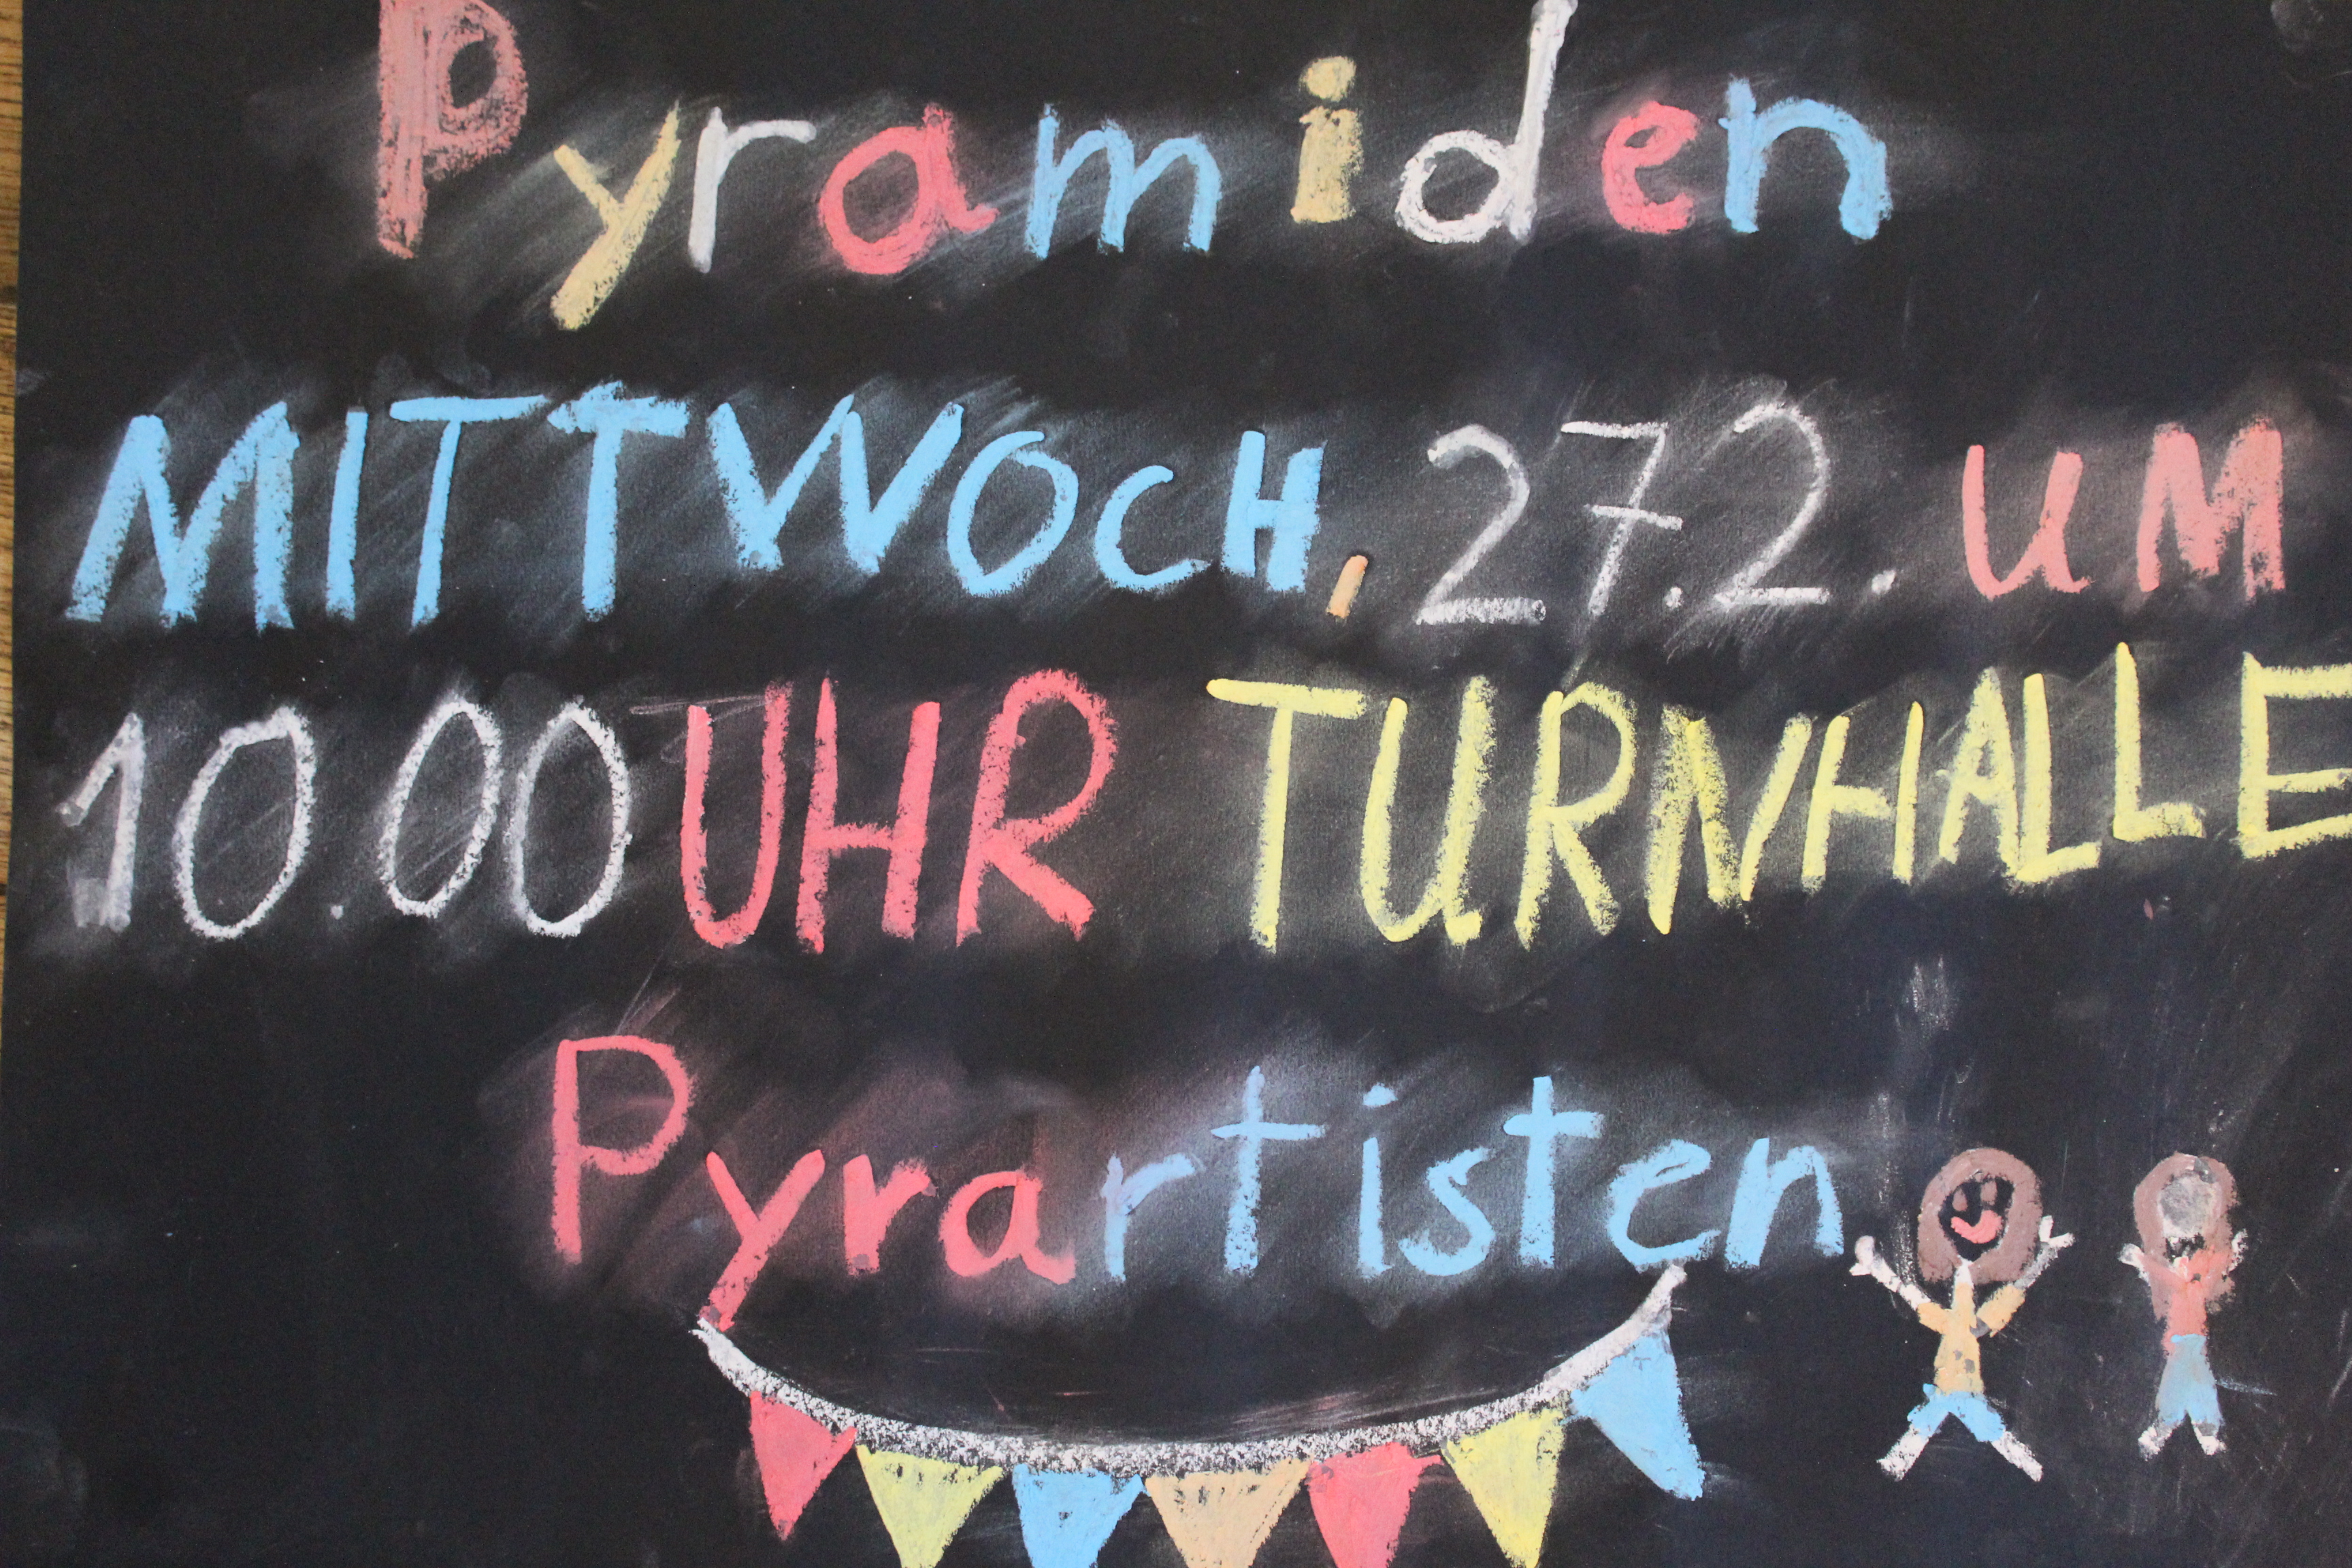 Pyramiden
MITTWOCH, 27.2. UM
10.00 UHR TURNHALLE
Pyrartisten